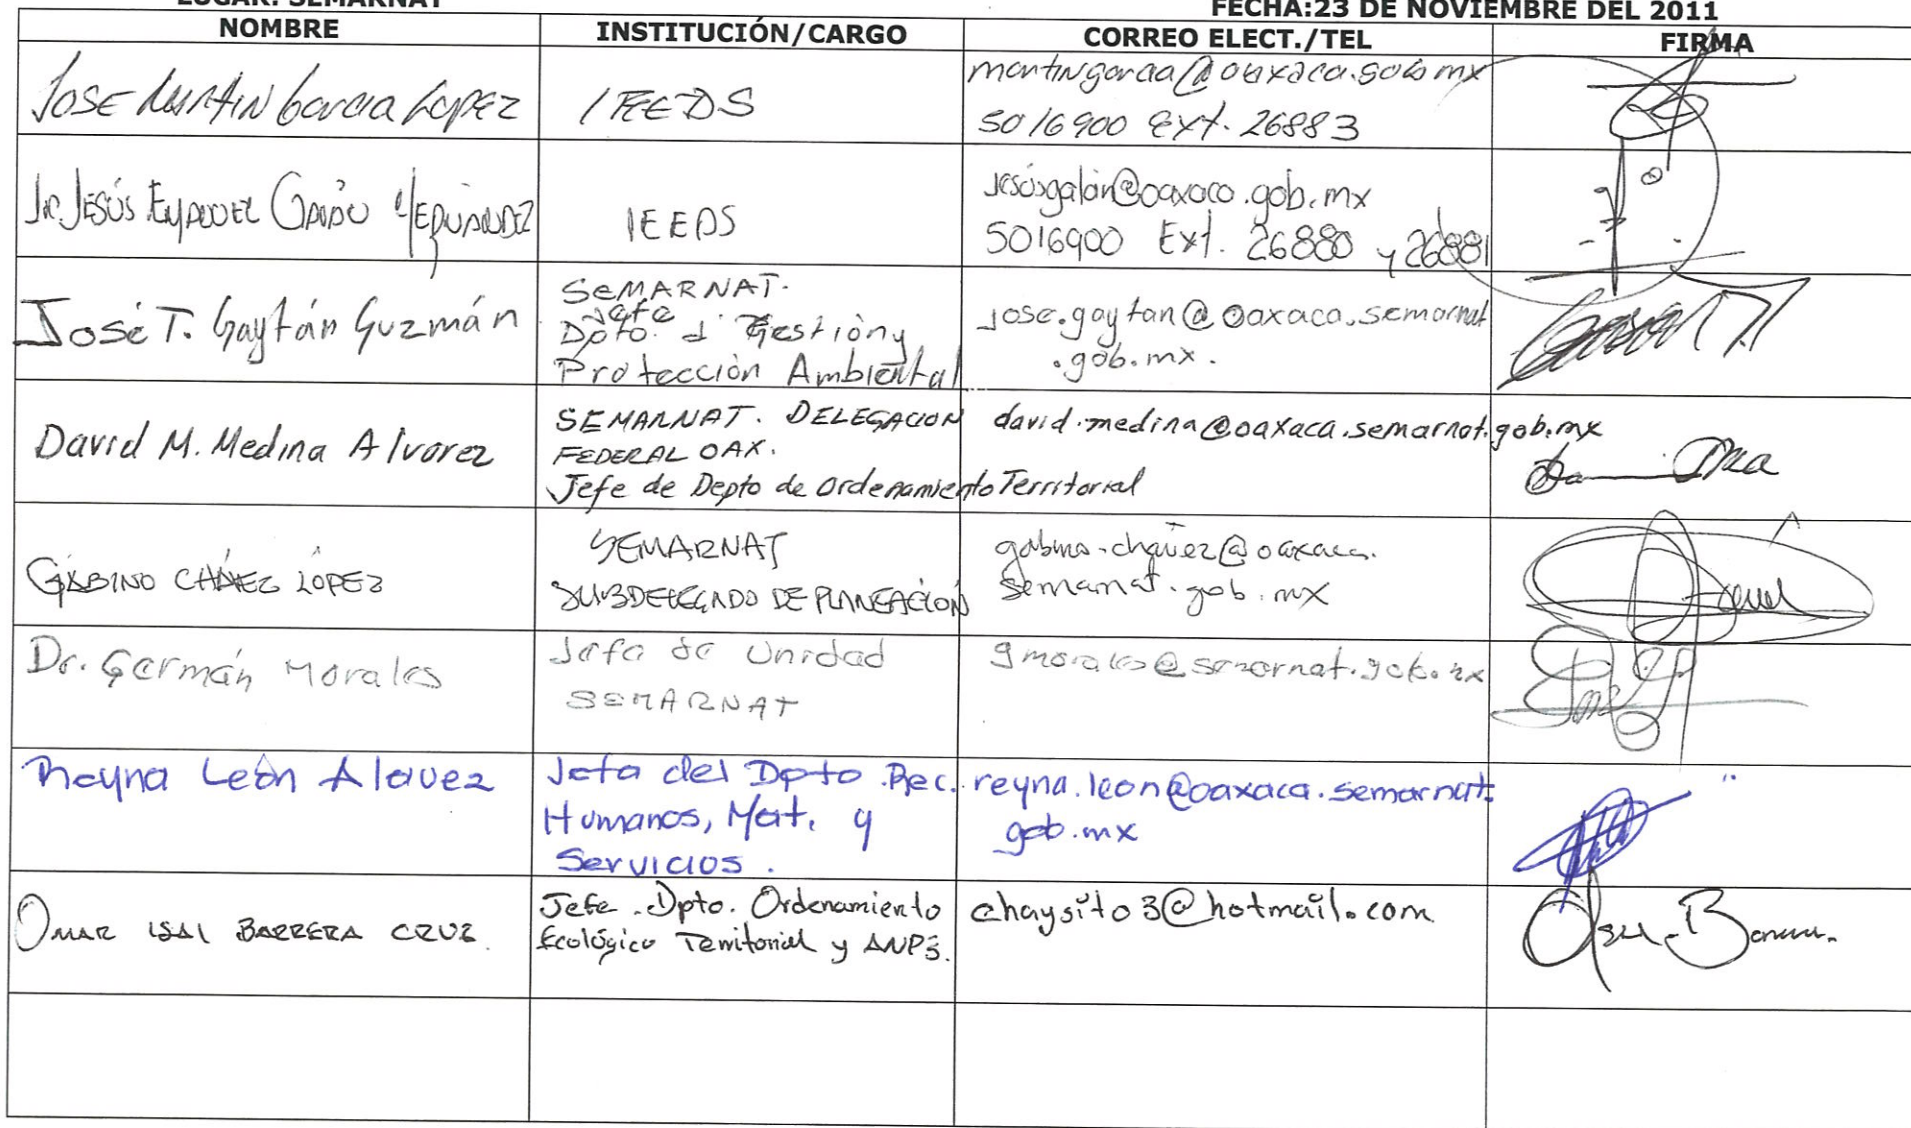 LUGAR: SEMARNAT
FECHA:23 DE NOVIEMBRE DEL 2011
NOMBRE
INSTITUCIÓN/CARGO
CORREO ELECT./TEL
FIRMA
JOSE MARTIN Garcia Lopez
IEEDS
martingarcia@oaxaca.gob.mx
5016900 Ext. 26883
JESÚS
IEEDS
jesusgalan@oaxaca.gob.mx
5016900 Ext. 26880 y 26881
José T. Gaytán Guzmán
SEMARNAT.
Jefe
Dpto. d' Gestión y
Protección Ambiental
jose.gaytan@oaxaca.semarnat
.gob.mx.
David M. Medina Alvarez
SEMARNAT. DELEGACION
FEDERAL OAX.
Jefe de Depto de Ordenamiento Territorial
david.medina@oaxaca.semarnat.gob.mx
GABINO CHÁVEZ LÓPEZ
SEMARNAT
SUBDELEGADO DE PLANEACIÓN
gabino.chavez@oaxaca.
semarnat.gob.mx
Dr. Germán Morales
Jefe de Unidad
SEMARNAT
gmorales@semarnat.gob.mx
Reyna León Alavez
Jefa del Dpto Rec.
Humanos, Mat. y
Servicios.
reyna.leon@oaxaca.semarnat.
gob.mx
OMAR ISAI BARRERA CRUZ.
Jefe Dpto. Ordenamiento
Ecológico Territorial y ANPS.
chaysito3@hotmail.com